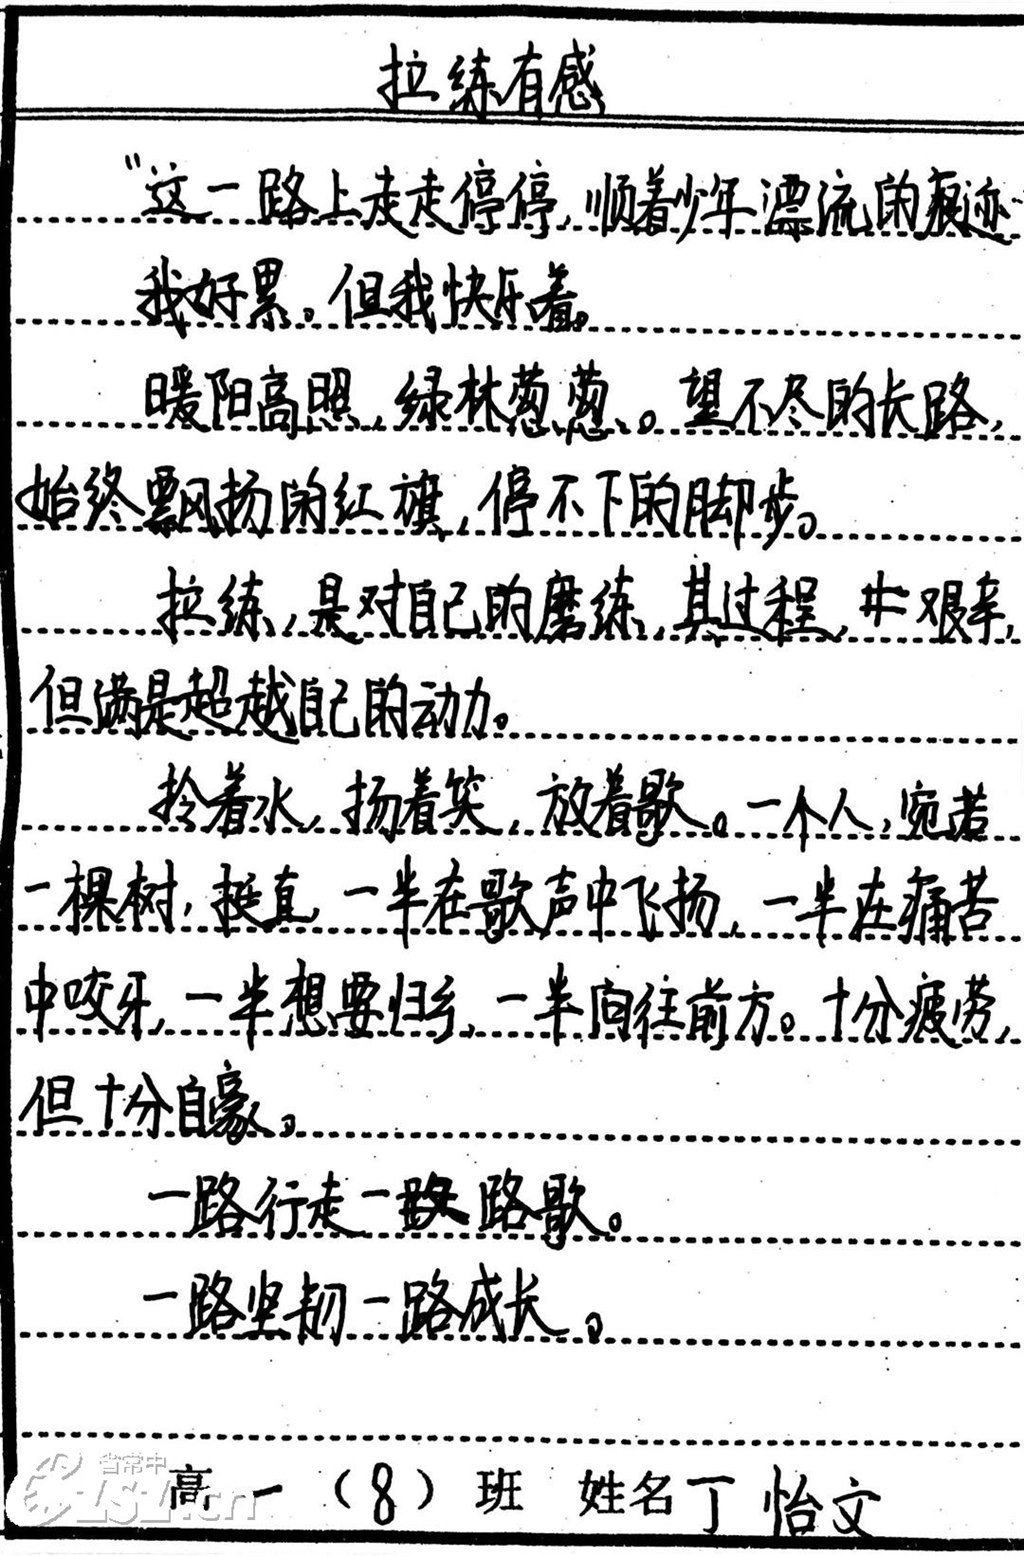 拉练有感
“这一路上走走停停,顺着少年漂流的痕迹
我好累。但我快乐着。
暖阳高照,绿林葱葱。望不尽的长路,
始终飘扬的红旗,停不下的脚步。
拉练,是对自己的磨练,其过程,艰辛,
但满是超越自己的动力。
拎着水,扬着笑,放着歌。一个人,宛若
一棵树,挺直,一半在歌声中飞扬,一半在痛苦
中咬牙,一半想要归乡,一半向往前方。十分疲劳,
但十分自豪。
一路行走一路歌。
一路坚韧一路成长。
高一(8)班 姓名丁怡文
省常中